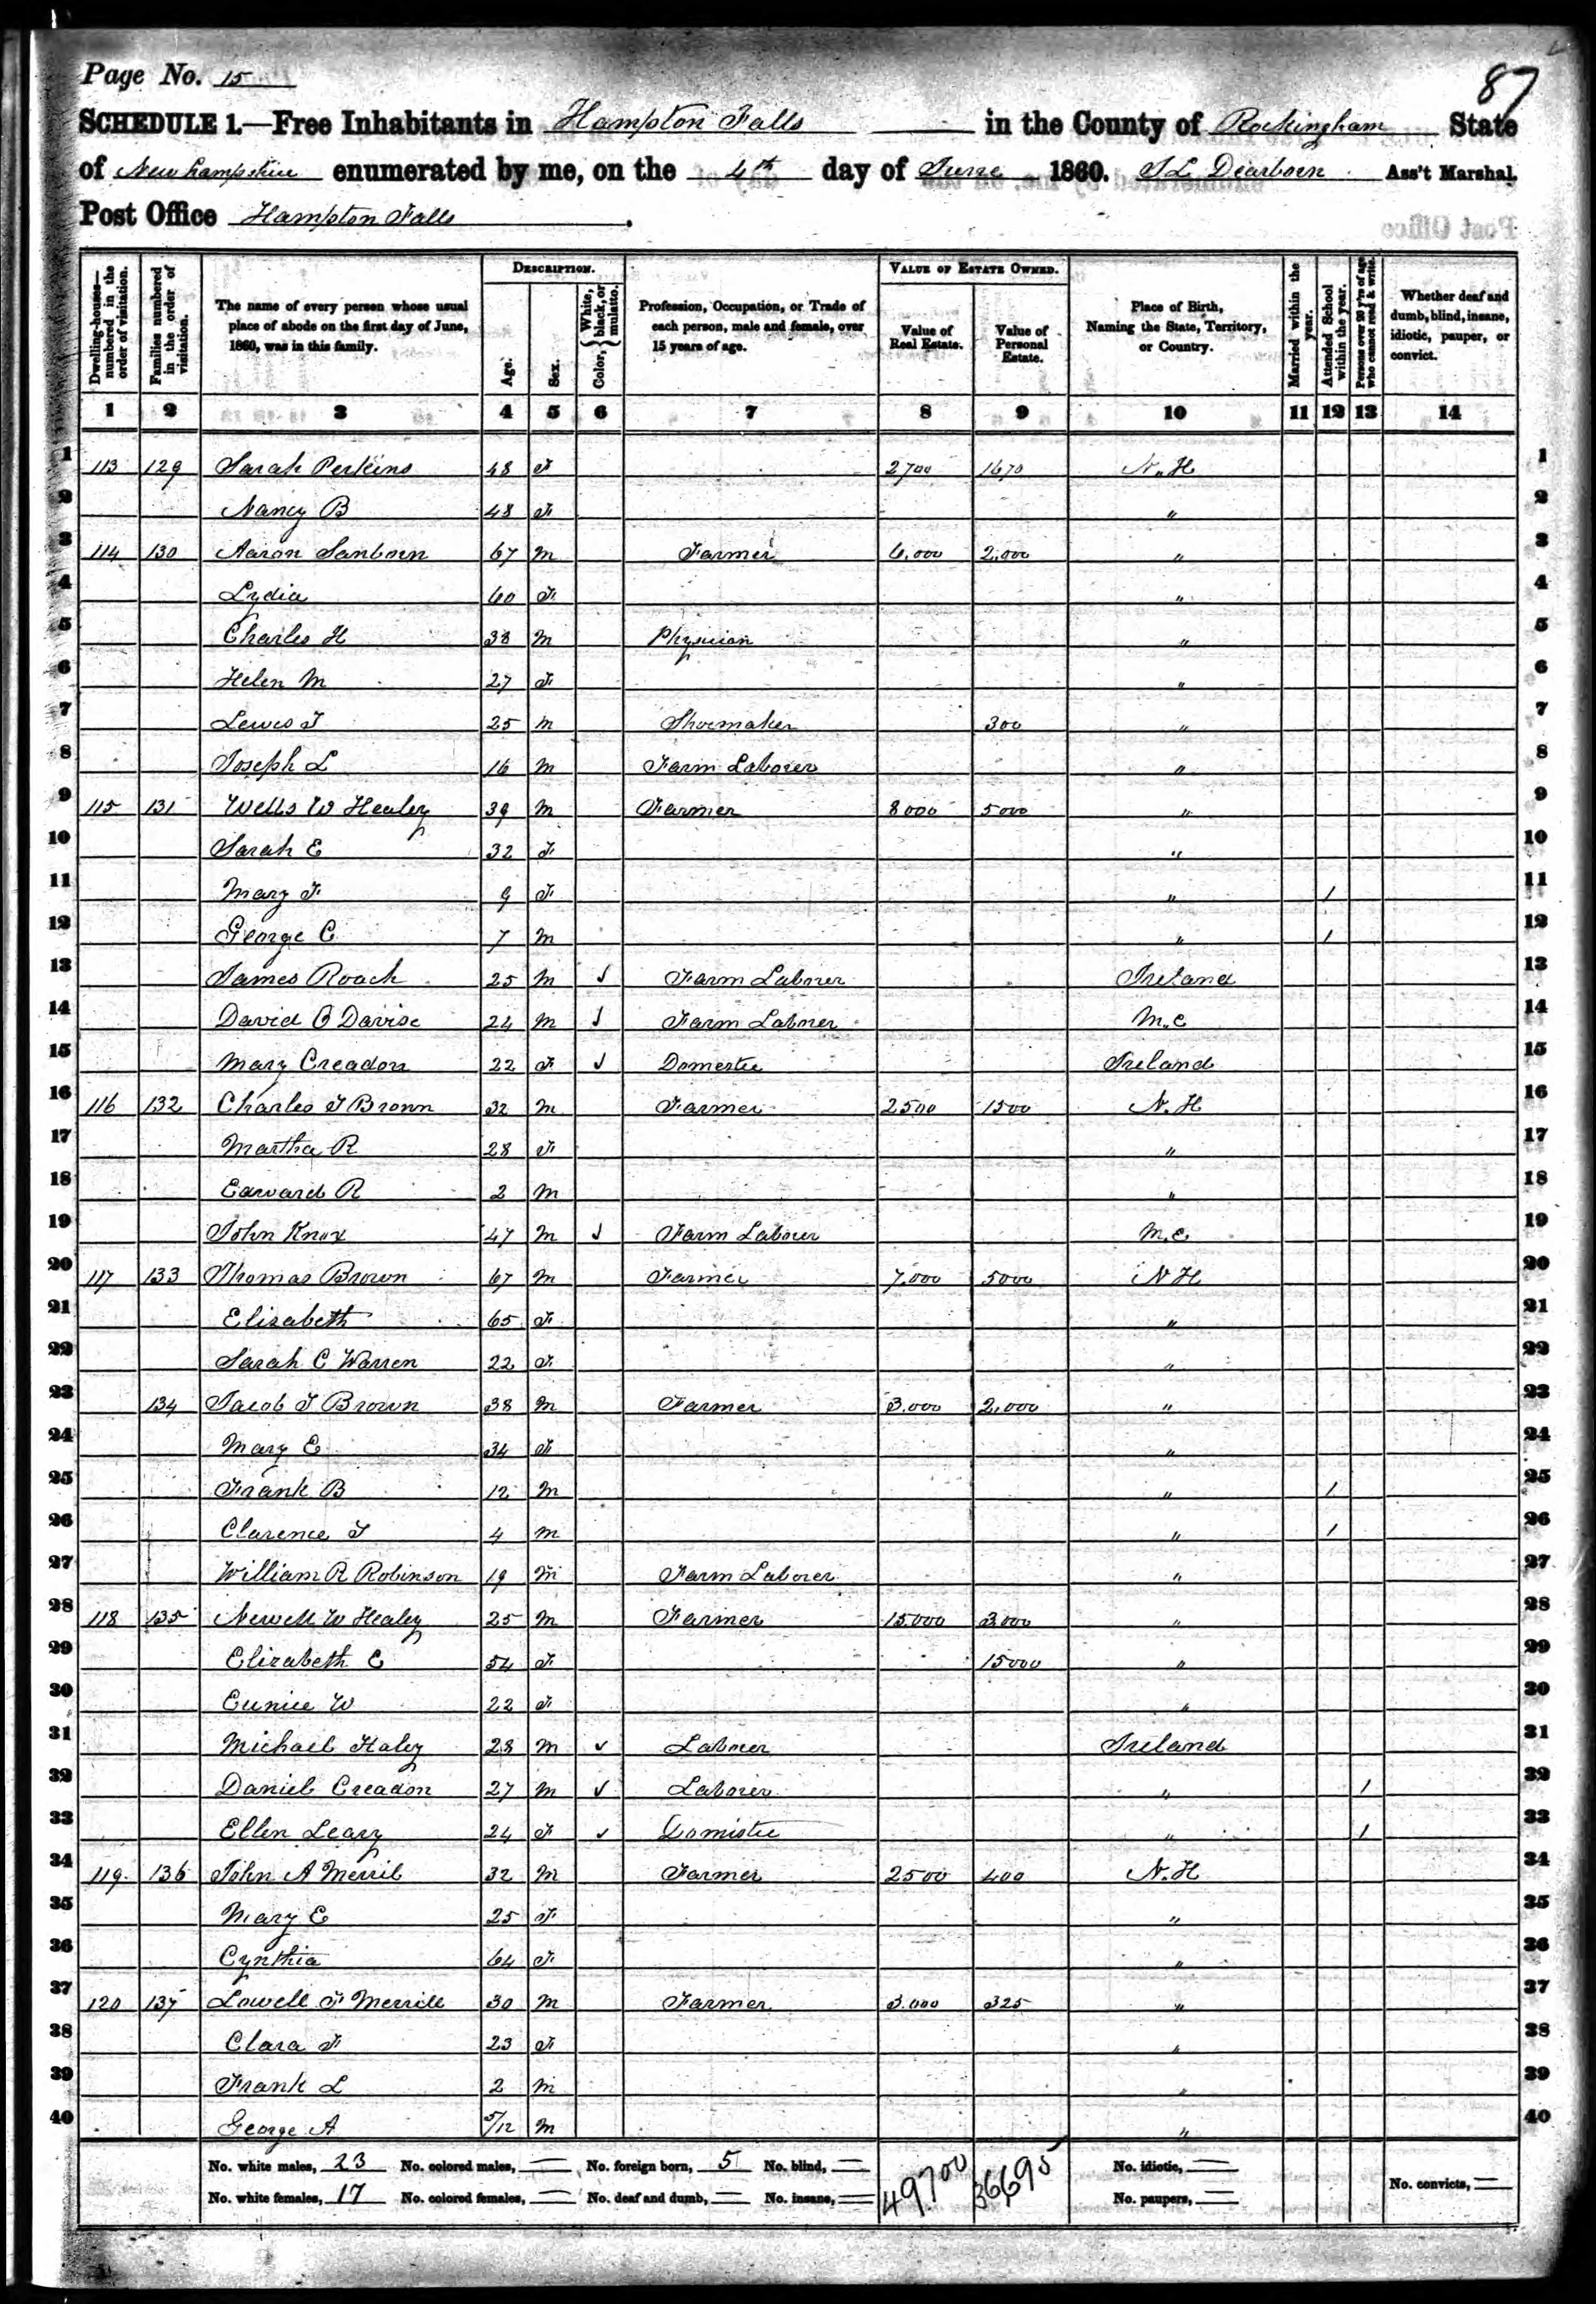 Page No. 15
87
SCHEDULE 1.—Free Inhabitants in Hampton Falls in the County of Rockingham State
of New hampshire enumerated by me, on the 4th day of June 1860. S L Dearborn Ass't Marshal.
Post Office Hampton Falls.
Dwelling-houses—numbered in the order of visitation. Families numbered in the order of visitation. The name of every person whose usual place of abode on the first day of June, 1860, was in this family. DESCRIPTION. Age. Sex. Color, White, black, or mulatto. Profession, Occupation, or Trade of each person, male and female, over 15 years of age. VALUE OF ESTATE OWNED. Value of Real Estate. Value of Personal Estate. Place of Birth, Naming the State, Territory, or Country. Married within the year. Attended School within the year. Persons over 20 y'rs of age who cannot read & write. Whether deaf and dumb, blind, insane, idiotic, pauper, or convict.
1 2 3 4 5 6 7 8 9 10 11 12 13 14
1 113 129 Sarah Perkins 48 F 2700 1670 N. H 1
2 Nancy B 48 F " 2
3 114 130 Aaron Sanborn 67 M Farmer 6,000 2,000 " 3
4 Lydia 60 F " 4
5 Charles H 38 M Physician " 5
6 Helen M 27 F " 6
7 Lewis T 25 M Shoemaker 300 " 7
8 Joseph L 16 M Farm Laborer " 8
9 115 131 Wells W Healey 39 M Farmer 8000 5000 " 9
10 Sarah E 32 F " 10
11 Mary F 9 F " / 11
12 George C 7 M " / 12
13 James Roach 25 M ✓ Farm Laborer Ireland 13
14 David O Davise 24 M ✓ Farm Laborer M.e 14
15 Mary Creadon 22 F ✓ Domestic Ireland 15
16 116 132 Charles T Brown 32 M Farmer 2500 1500 N. H 16
17 Martha R 28 F " 17
18 Edward R 2 M " 18
19 John Knox 47 M ✓ Farm Laborer M.e 19
20 117 133 Thomas Brown 67 M Farmer 7,000 5000 N H 20
21 Elisabeth 65 F " 21
22 Sarah C Warren 22 F " 22
23 134 Jacob T Brown 38 M Farmer 3.000 2,000 " 23
24 Mary E 34 F " 24
25 Frank B 12 M " / 25
26 Clarence T 4 M " / 26
27 William R Robinson 19 M Farm Laborer " 27
28 118 135 Newell W Healey 25 M Farmer 15.000 3.000 " 28
29 Elizabeth C 54 F 15000 " 29
30 Eunice W 22 F " 30
31 Michael Haley 28 M ✓ Laborer Ireland 31
32 Daniel Creadon 27 M ✓ Laborer " / 32
33 Ellen Leary 24 F ✓ Domistic " / 33
34 119 136 John A Merril 32 M Farmer 2500 400 N. H 34
35 Mary E 25 F " 35
36 Cynthia 64 F " 36
37 120 137 Lowell F Merrill 30 M Farmer 3.000 325 " 37
38 Clara F 23 F " 38
39 Frank L 2 M " 39
40 George A 5/12 M " 40
No. white males, 23 No. colored males, — No. foreign born, 5 No. blind, — 49700 36695 No. idiotic, —
No. white females, 17 No. colored females, — No. deaf and dumb, — No. insane, — No. paupers, — No. convicts, —